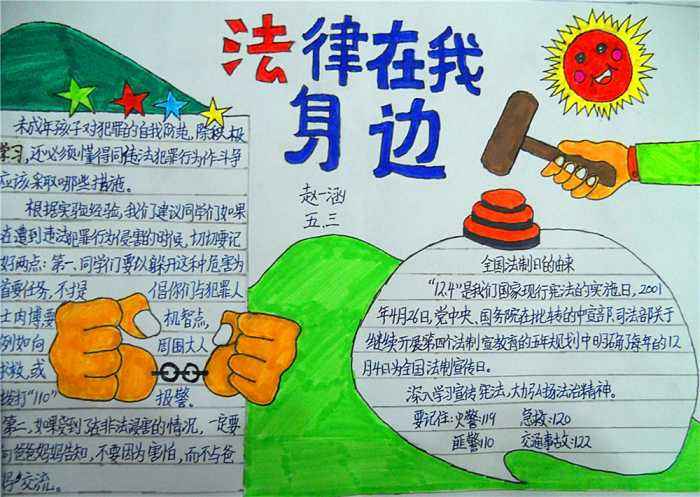 法律在我
身边
赵一涵
五.三
未成年孩子对犯罪的自我防范,除积极
学习,还必须懂得同违法犯罪行为作斗争
应该采取哪些措施。
根据实验经验,我们建议同学们如果
在遭到违法犯罪行为侵害的时候,切切要记
好两点:第一、同学们要以躲开这种危害为
首要任务,不提倡你们与犯罪人
士内博要机智点,
例如向周围大人
求救,或
拨打“110”报警。
第二、如果受到了在非法侵害的情况,一定要
向爸爸妈妈告知,不要因为害怕,而不与爸
妈交流。
全国法制日的由来
“12.4”是我们国家现行宪法的实施日,2001
年4月26日,党中央、国务院在批转的中宣部司法部关于
继续开展第四个法制宣教育的五年规划中明确了每年的12
月4日为全国法制宣传日。
深入学习宣传宪法,大力弘扬法治精神。
要记住:火警:119 急救:120
匪警110 交通事故:122